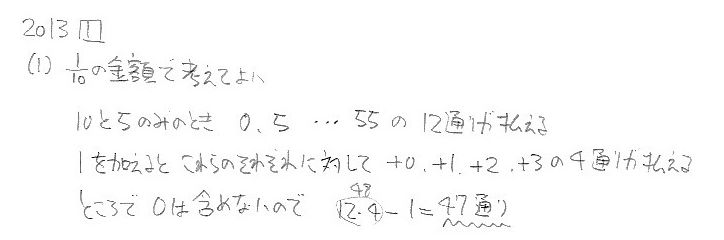 2013 1
(1) 1/10の金額で考えてよい
10と5のみのとき 0, 5 … 55 の 12通りが払える
1を加えると これらのそれぞれに対して +0, +1, +2, +3の4通りが払える
ところで 0は含めないので 48 12・4-1=47通り